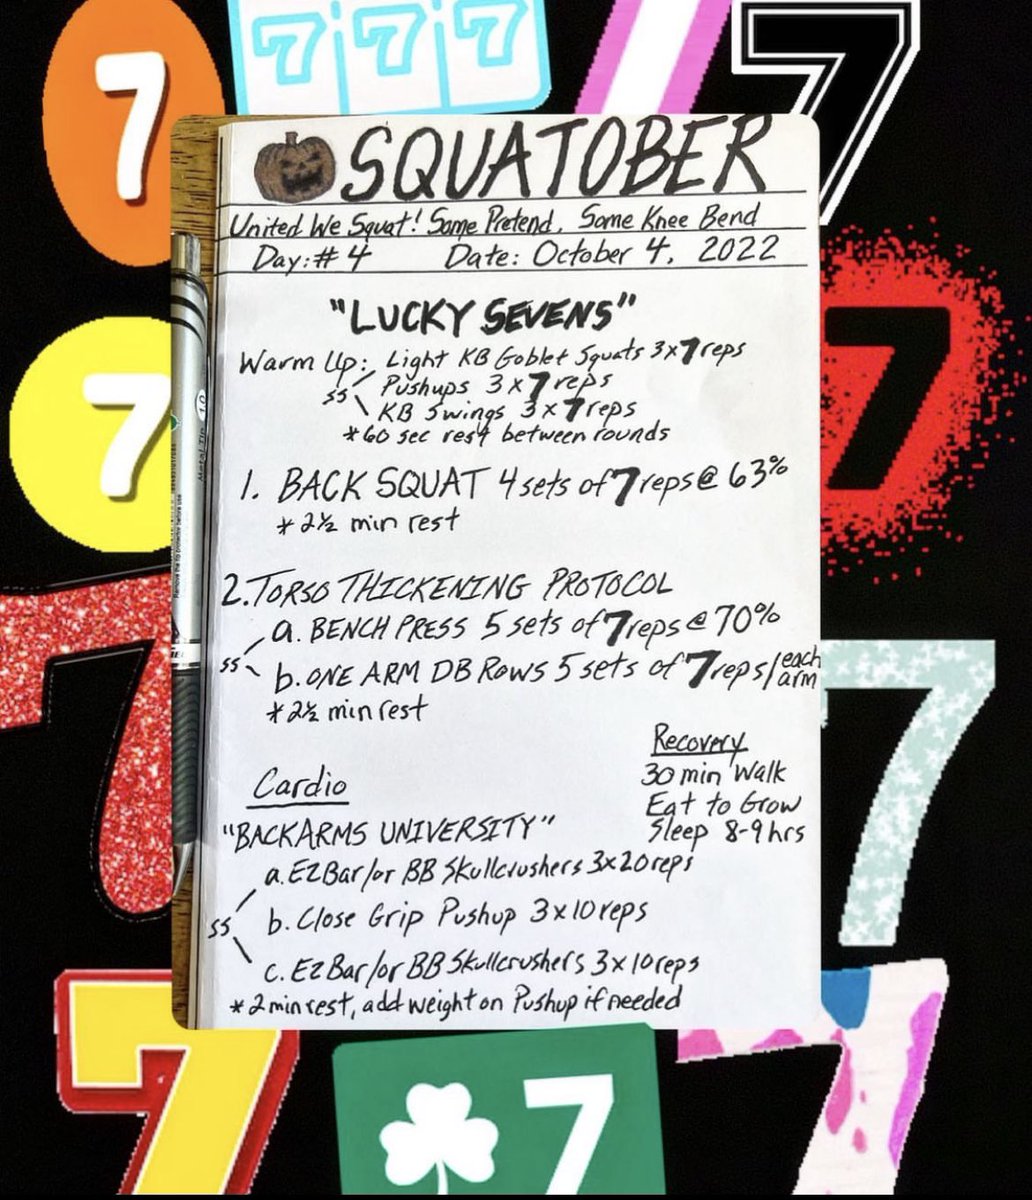 7
7 7 7
7
SQUATOBER
United We Squat! Some Pretend, Some Knee Bend
Day:#4 Date: October 4, 2022
"LUCKY SEVENS"
Warm Up: Light KB Goblet Squats 3x7reps
ss Pushups 3x7reps
KB Swings 3x7reps
*60 sec rest between rounds
1. BACK SQUAT 4 sets of 7 reps @ 63%
* 2½ min rest
2. TORSO THICKENING PROTOCOL
a. BENCH PRESS 5 sets of 7reps @ 70%
ss b. ONE ARM DB ROWS 5 sets of 7reps/each arm
* 2½ min rest
Recovery
30 min Walk
Eat to Grow
Sleep 8-9 hrs
Cardio
"BACKARMS UNIVERSITY"
a. EZ Bar/or BB Skullcrushers 3x20reps
ss b. Close Grip Pushup 3x10reps
c. EZ Bar/or BB Skullcrushers 3x10reps
* 2 min rest, add weight on Pushup if needed
Metal Tip 1.0
7
7
7
7
7
7
7